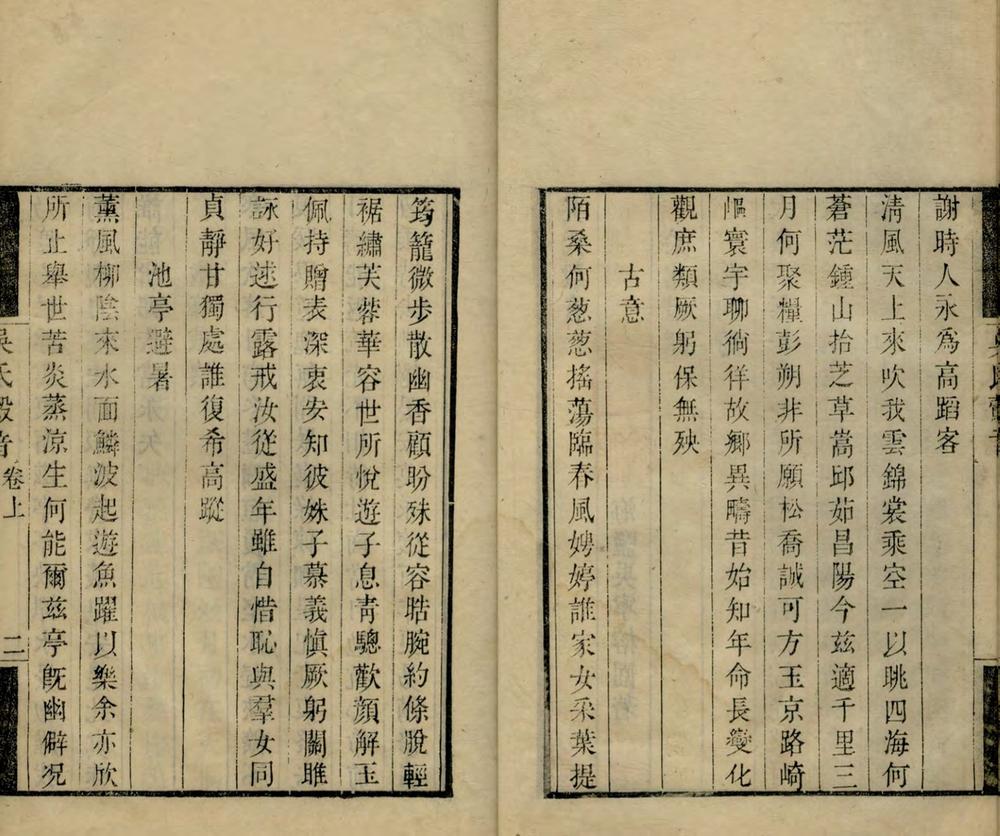 謝時人永爲高蹈客
淸風天上來吹我雲錦裳乘空一以眺四海何
蒼茫鍾山拾芝草嵩邱茹昌陽今茲適千里三
月何聚糧彭朔非所願松喬誠可方玉京路崎
嶇寰宇聊徜徉故鄉異疇昔始知年命長變化
觀庶類厥躬保無殃
古意
陌桑何葱葱搖蕩臨春風娉婷誰家女采葉提
筠籠微步散幽香顧盼殊從容皓腕約條脫輕
裾繡芙蓉華容世所悅遊子息靑驄歡顏解玉
佩持贈表深衷安知彼姝子慕義愼厥躬關雎
詠好逑行露戒汝從盛年雖自惜恥與羣女同
貞靜甘獨處誰復希高蹤
池亭避暑
薰風柳陰來水面鱗波起遊魚躍以樂余亦欣
所止舉世苦炎蒸涼生何能爾茲亭旣幽僻况
吳氏㲉音 卷上 二